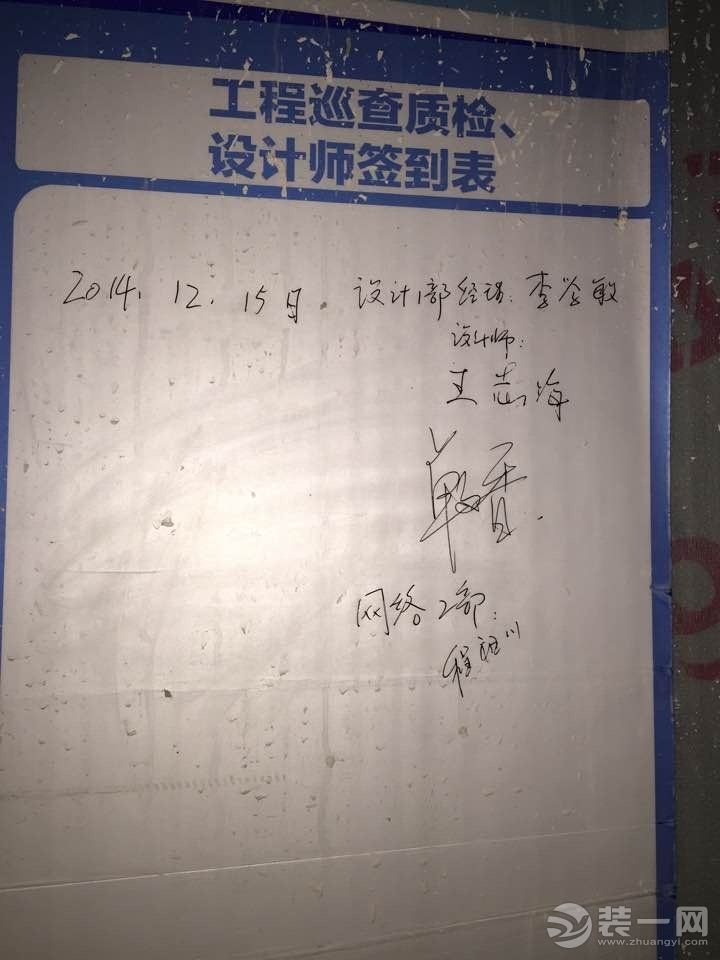 工程巡查质检、
设计师签到表
2014.12.15日 设计部经理:李学敏
设计师:
王志海
单香
网络2部:
程祖川
装一网
www.zhuangyi.com